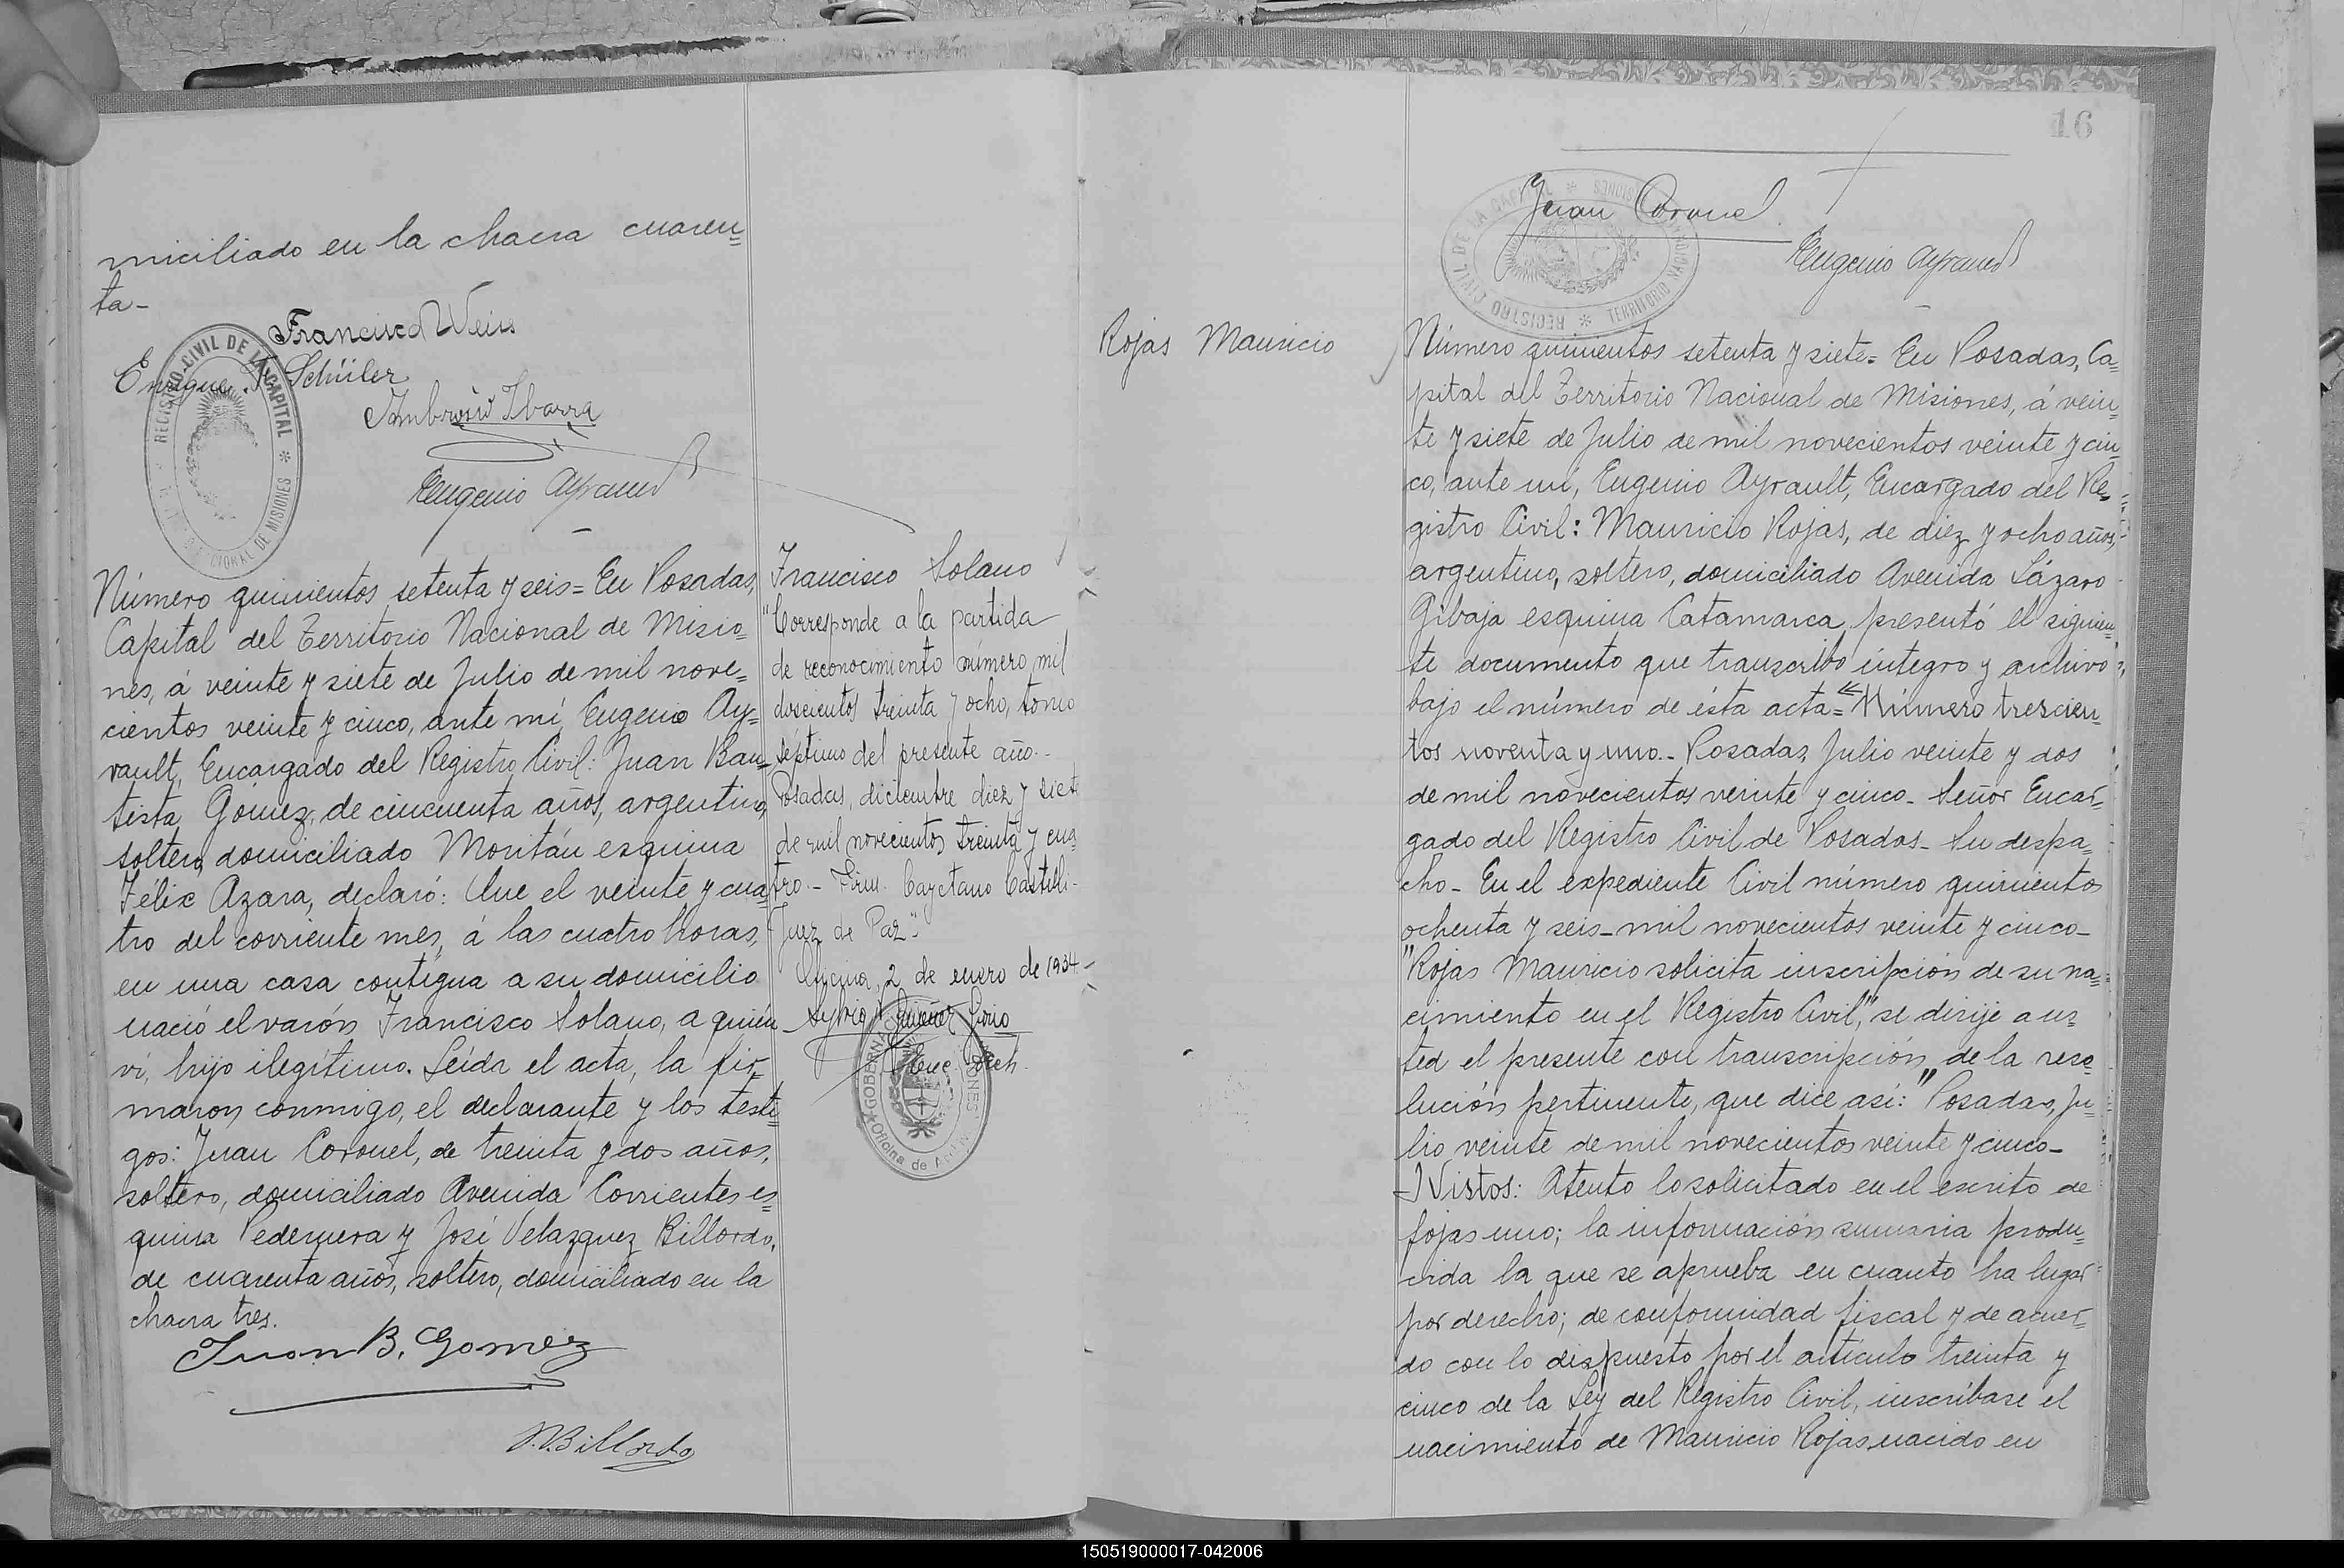 miciliado en la chacra cuaren=
ta-
Francisco Weiss
Enrique F. Schüler
Ambrosio Ibarra
Eugenio Ayrault
REGISTRO CIVIL DE LA CAPITAL * NACIONAL DE MISIONES *
Número quinientos setenta y seis= En Posadas,
Capital del Territorio Nacional de Misio=
nes, á veinte y siete de Julio de mil nove=
cientos veinte y cinco, ante mí, Eugenio Ay=
rault, Encargado del Registro Civil: Juan Bau=
tista Gómez, de cincuenta años, argentino,
soltero, domiciliado Moritán esquina
Félix Azara, declaró: Que el veinte y cua=
tro del corriente mes, á las cuatro horas,
en una casa contigua a su domicilio
nació el varón Francisco Solano, a quién
ví, hijo ilegítimo. Leída el acta, la fir=
maron conmigo, el declarante y los testi=
gos: Juan Coronel, de treinta y dos años,
soltero, domiciliado Avenida Corrientes es=
quina Pedernera y José Velazquez Billordo,
de cuarenta años, soltero, domiciliado en la
chacra tres.
Juan B. Gomez
J.V. Billordo
Francisco Solano
"Corresponde a la partida
de reconocimiento número mil
doscientos treinta y ocho, tomo
séptimo del presente año.-
Posadas, diciembre diez y siete
de mil novecientos treinta y cua=
tro.- Firm. Cayetano Castelli-
Juez de Paz".-
Oficina, 2 de enero de 1934.-
Sylvio
GOBERN
Oficina de
16
Juan Coronel
REGISTRO CIVIL DE LA CAPITAL * TERRITORIO NACIONAL MISIONES *
Eugenio Ayrault
Rojas Mauricio
Número quinientos setenta y siete= En Posadas, Ca=
pital del Territorio Nacional de Misiones, á vein=
te y siete de Julio de mil novecientos veinte y cin=
co, ante mí, Eugenio Ayrault, Encargado del Re=
gistro Civil: Mauricio Rojas, de diez y ocho años,
argentino, soltero, domiciliado Avenida Lázaro
Gibaja esquina Catamarca, presentó el siguien=
te documento que transcribo íntegro y archivo
bajo el número de ésta acta= "Número trescien=
tos noventa y uno.- Posadas, Julio veinte y dos
de mil novecientos veinte y cinco- Señor Encar=
gado del Registro Civil de Posadas- Su despa=
cho- En el expediente Civil número quinientos
ochenta y seis-mil novecientos veinte y cinco-
"Rojas Mauricio solicita inscripción de su na=
cimiento en el Registro Civil," se dirije a us=
ted el presente con transcripción de la reso=
lución pertinente, que dice así: "Posadas, Ju=
lio veinte de mil novecientos veinte y cinco-
Y Vistos: Atento lo solicitado en el escrito de
fojas uno; la información sumaria produ=
cida la que se aprueba en cuanto ha lugar
por derecho; de conformidad fiscal y de acuer=
do con lo dispuesto por el artículo treinta y
cinco de la Ley del Registro Civil, inscríbase el
nacimiento de Mauricio Rojas, nacido en
150519000017-042006